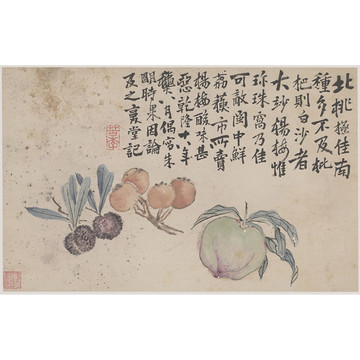 北桃極佳南
種多不及枇
杷則白沙者
大玅楊梅惟
珍珠窩乃佳
可敵閩中鮮
荔市所賣
楊梅酸味甚
惡乾隆十八年
八月偶寫朱
明時果因論
及之堂記